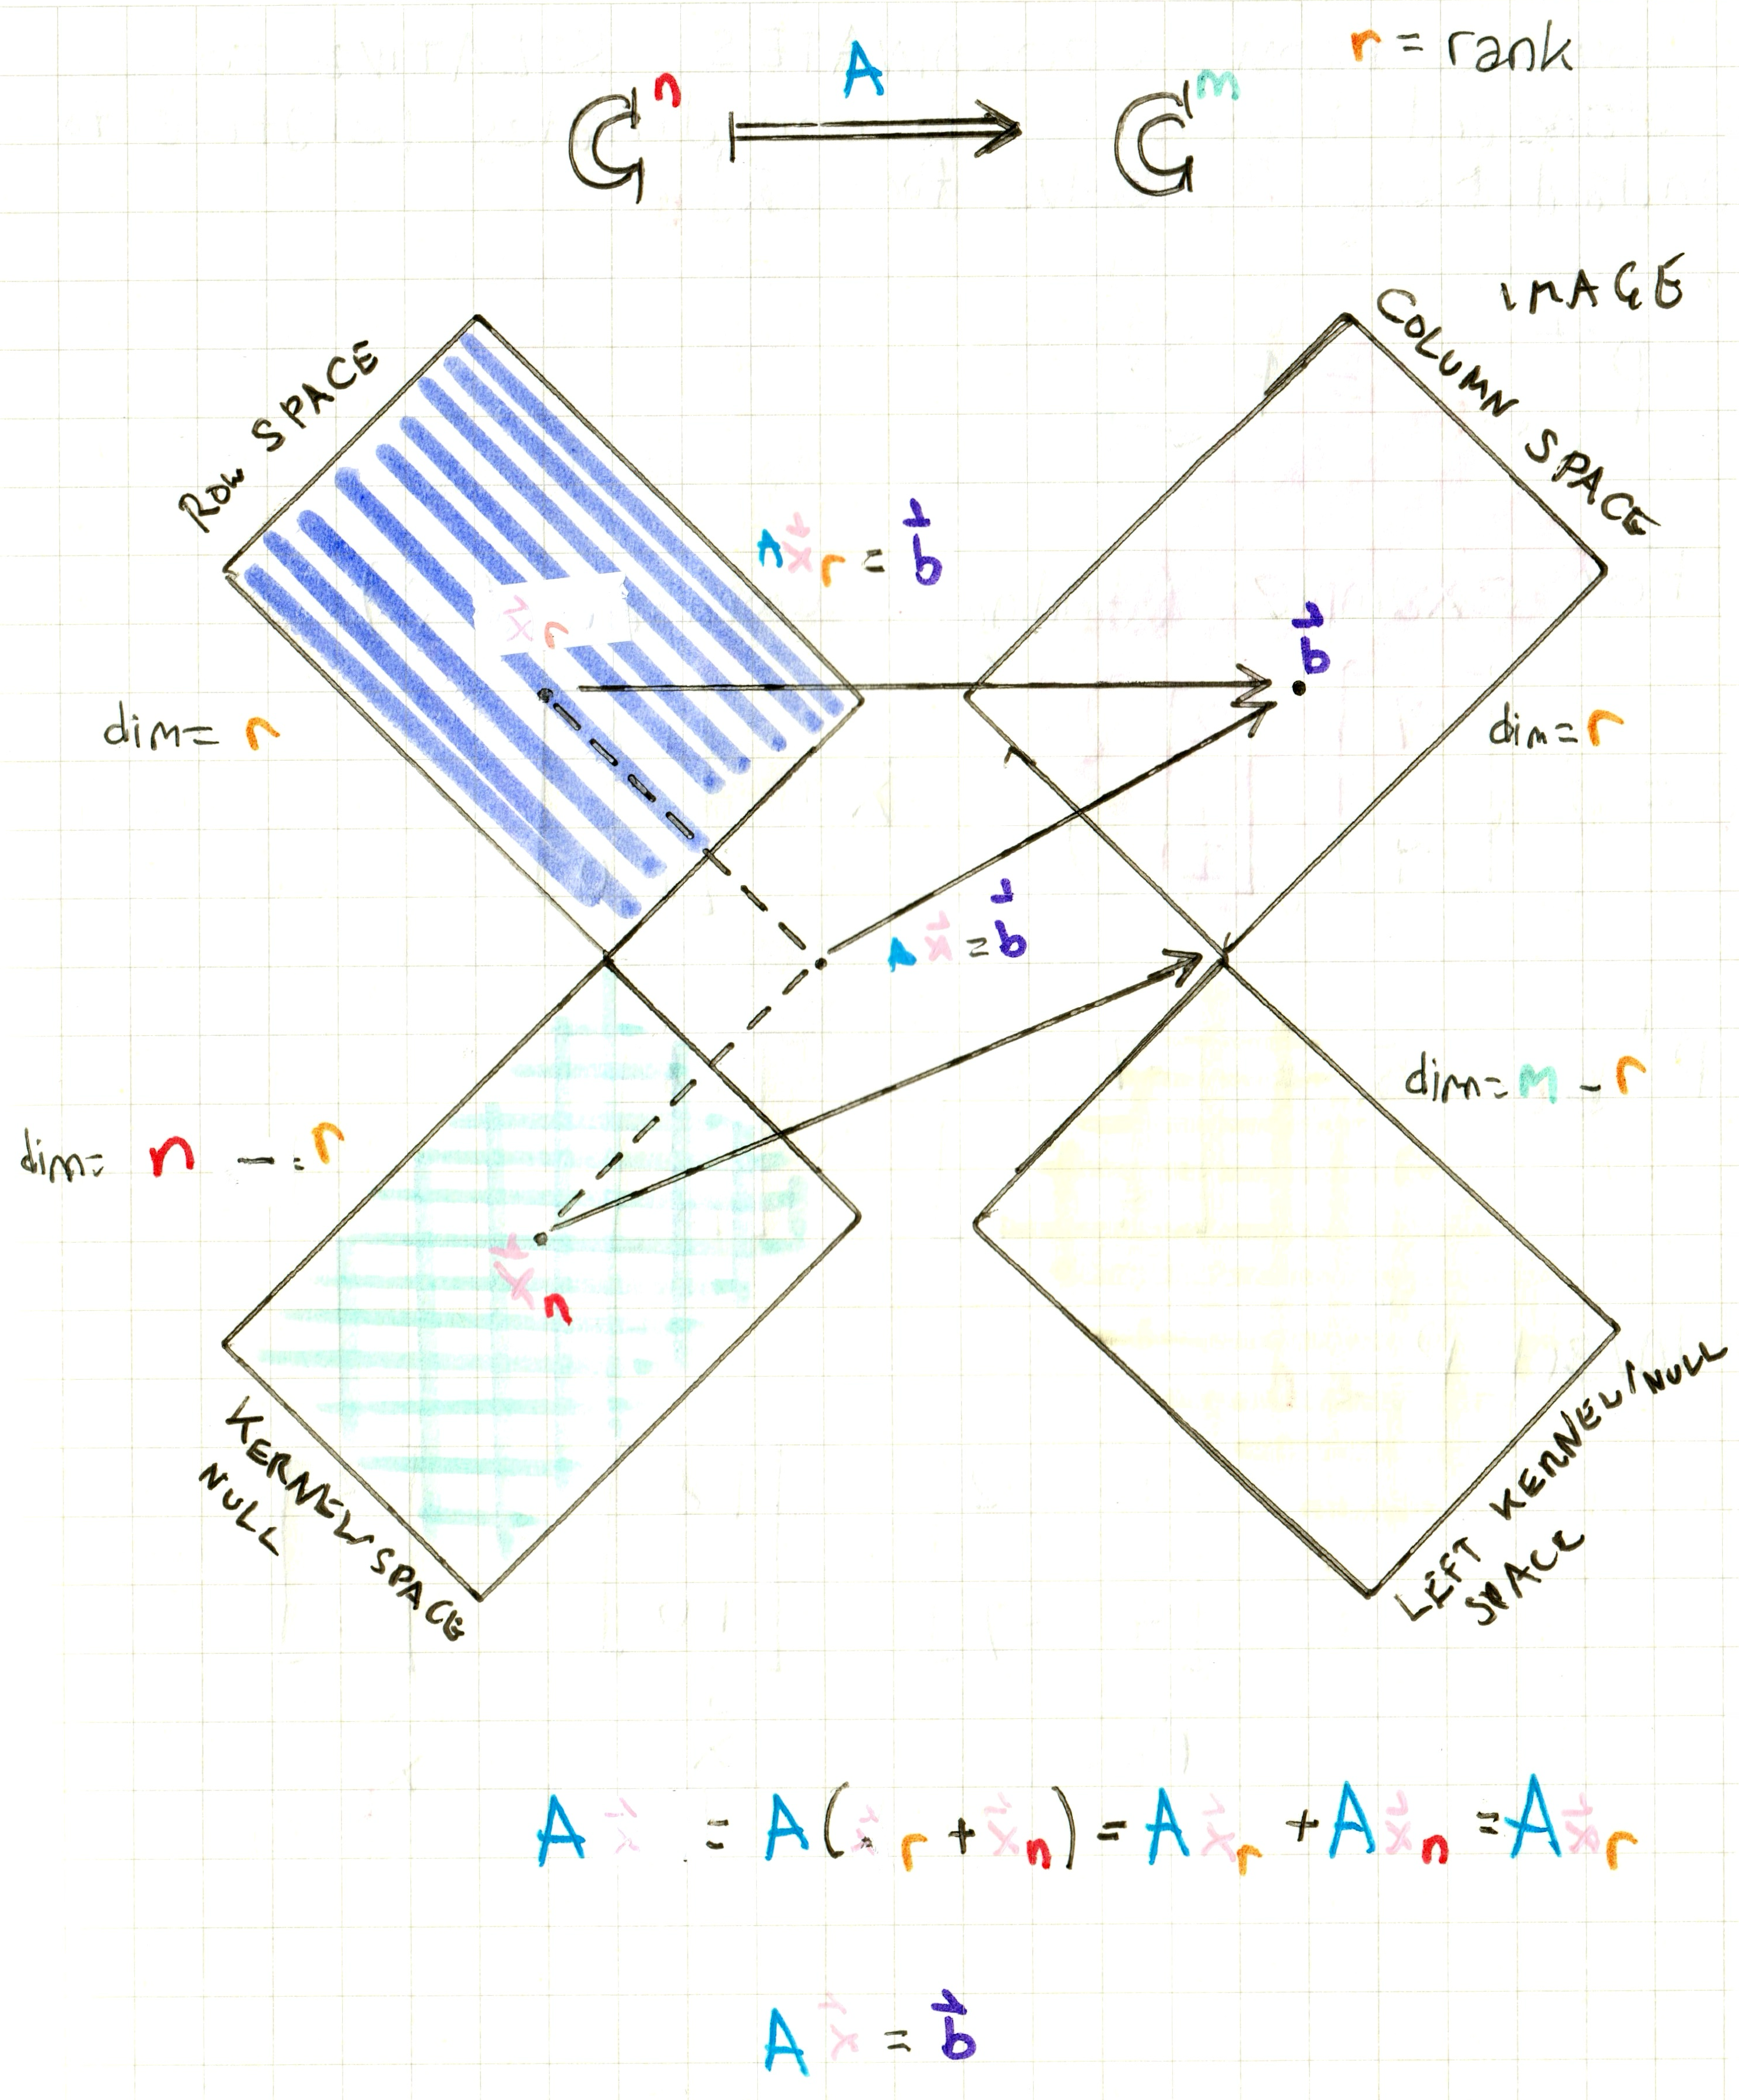 r = rank
A
ℂⁿ ⟹ ℂᵐ
IMAGE
ROW SPACE
COLUMN SPACE
A x⃗ r = b⃗
x⃗ r
b⃗
dim= r
dim= r
A x⃗ = b⃗
dim= m - r
dim= n - = r
x⃗ n
KERNEL/SPACE
NULL
LEFT KERNEL/NULL
SPACE
A x⃗ = A( x⃗ r + x⃗ n ) = A x⃗ r + A x⃗ n = A x⃗ r
A x⃗ = b⃗